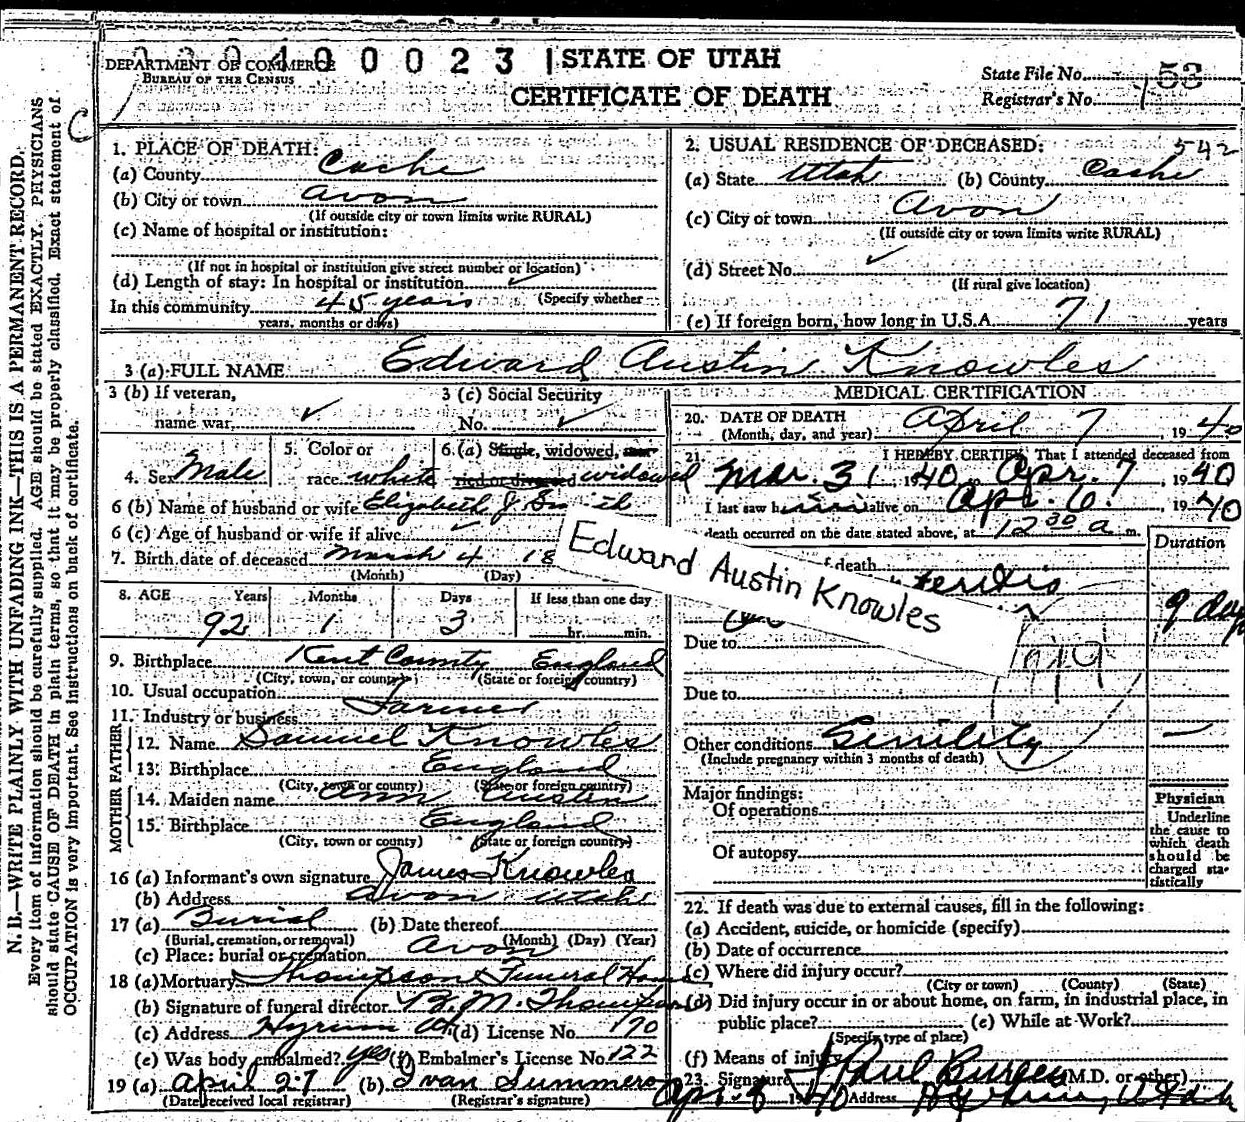 0400023 | STATE OF UTAH
DEPARTMENT OF COMMERCE
BUREAU OF THE CENSUS
CERTIFICATE OF DEATH
State File No. 53
Registrar's No.
N. B.—WRITE PLAINLY WITH UNFADING INK—THIS IS A PERMANENT RECORD.
Every item of information should be carefully supplied. AGE should be stated EXACTLY. PHYSICIANS
should state CAUSE OF DEATH in plain terms, so that it may be properly classified. Exact statement of
OCCUPATION is very important. See instructions on back of certificate.
C
1. PLACE OF DEATH:
(a) County Cache
(b) City or town Avon
(If outside city or town limits write RURAL)
(c) Name of hospital or institution:
(If not in hospital or institution give street number or location)
(d) Length of stay: In hospital or institution
(Specify whether
In this community 45 years
years, months or days)
2. USUAL RESIDENCE OF DECEASED: 542
(a) State Utah (b) County Cache
(c) City or town Avon
(If outside city or town limits write RURAL)
(d) Street No.
(If rural give location)
(e) If foreign born, how long in U.S.A. 71 years
3 (a) FULL NAME Edward Austin Knowles
3 (b) If veteran,
name war,
3 (c) Social Security
No.
4. Sex Male
5. Color or
race white
6. (a) Single, widowed, mar-
ried or divorced widowed
6 (b) Name of husband or wife Elizabeth J Smith
6 (c) Age of husband or wife if alive
7. Birth date of deceased March 4 18
(Month) (Day)
8. AGE Years Months Days If less than one day
92 1 3 hr. min.
9. Birthplace Kent County England
(City, town, or county) (State or foreign country)
10. Usual occupation Farmer
11. Industry or business
FATHER
12. Name Samuel Knowles
13. Birthplace England
(City, town or county) (State or foreign country)
MOTHER
14. Maiden name Ann Austin
15. Birthplace England
(City, town or county) (State or foreign country)
16 (a) Informant's own signature James Knowles
(b) Address Avon Utah
17 (a) Burial (b) Date thereof
(Burial, cremation, or removal) (Month) (Day) (Year)
(c) Place: burial or cremation Avon
18 (a) Mortuary Thompson Funeral Home
(b) Signature of funeral director
(c) Address Hyrum Ut. (d) License No. 170
(e) Was body embalmed? yes (f) Embalmer's License No. 122
19 (a) April 27 (b) Ivan Summers
(Date received local registrar) (Registrar's signature)
MEDICAL CERTIFICATION
20. DATE OF DEATH
(Month, day, and year) April 7, 1940
21. I HEREBY CERTIFY, That I attended deceased from
Mar. 31, 1940, to Apr. 7, 1940
I last saw him alive on Apr. 6, 1940
death occurred on the date stated above, at 12 30 a m.
Duration
of death
9 days
Edward Austin Knowles
Due to
119
Due to
Other conditions Senility
(Include pregnancy within 3 months of death)
Major findings:
Of operations
Of autopsy
Physician
Underline
the cause to
which death
should be
charged sta-
tistically
22. If death was due to external causes, fill in the following:
(a) Accident, suicide, or homicide (specify)
(b) Date of occurrence
(c) Where did injury occur?
(City or town) (County) (State)
(d) Did injury occur in or about home, on farm, in industrial place, in
public place? (e) While at Work?
(Specify type of place)
(f) Means of injury
23. Signature Paul (M.D. or other)
Apr. 8 1940 Address Hyrum, Utah